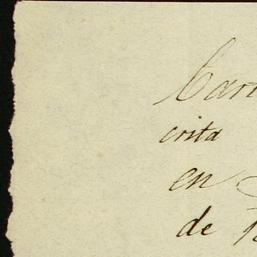 Cart
crita
en
de